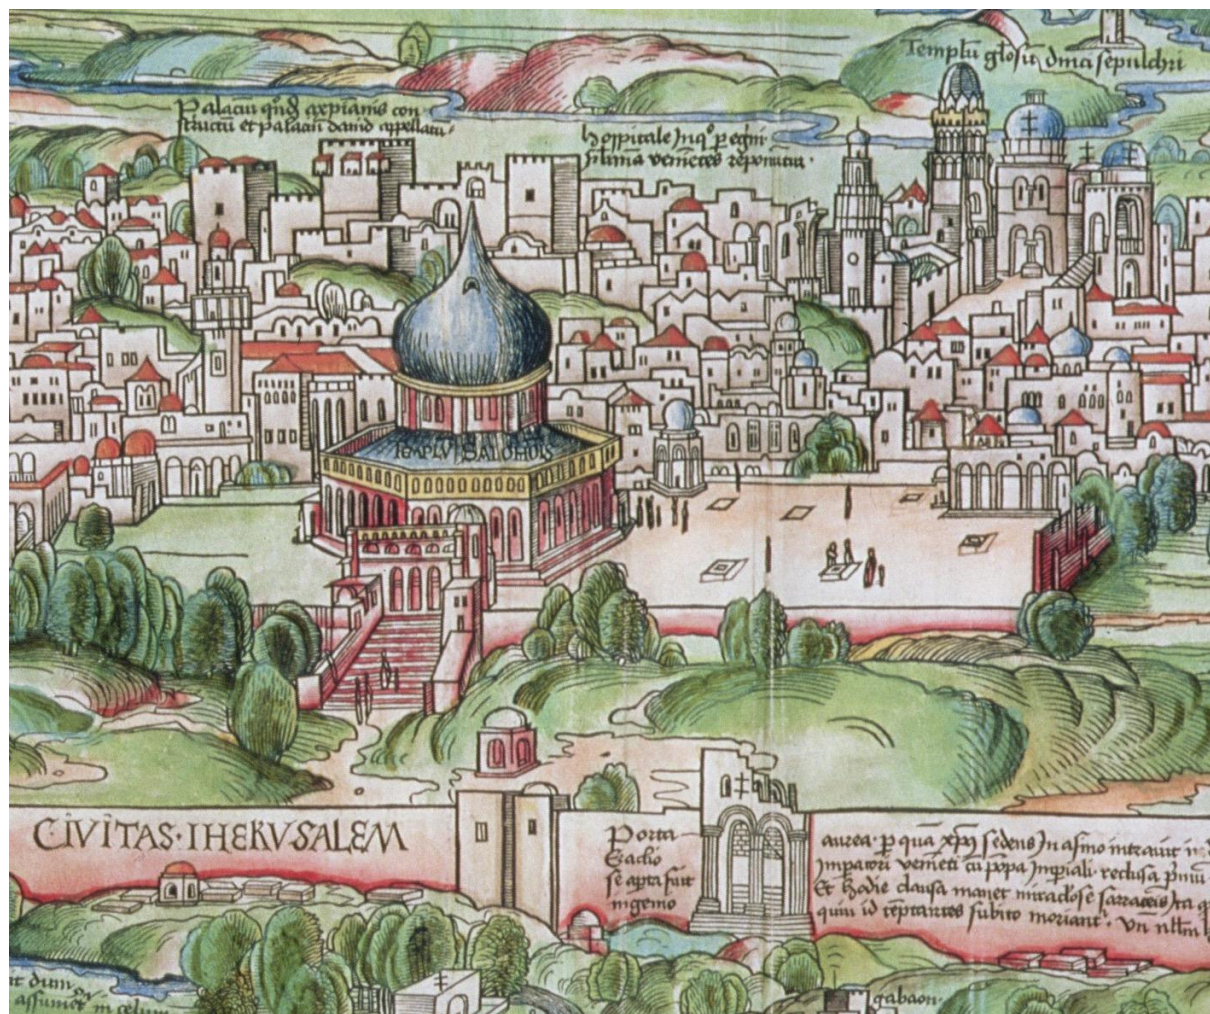 Templū glosū dnici sepulchri
Palaciū qnd axpianis con
structū et palaciū david appellatu
hospitale in qo peregri
venietes reponutur
TEMPLV SALOMOIS
CIVITAS · IHERVSALEM
Porta
se apta fuit
ingenio
aurea · p quā xps sedens in asino intravit
Impatori venieti cū pōpa Impiali · reclusa
Et hodie clausa manet miraclose sarracēis Ita
quia id teptantes subito moriant · Vn
it dum
assumet in celum
gabaon